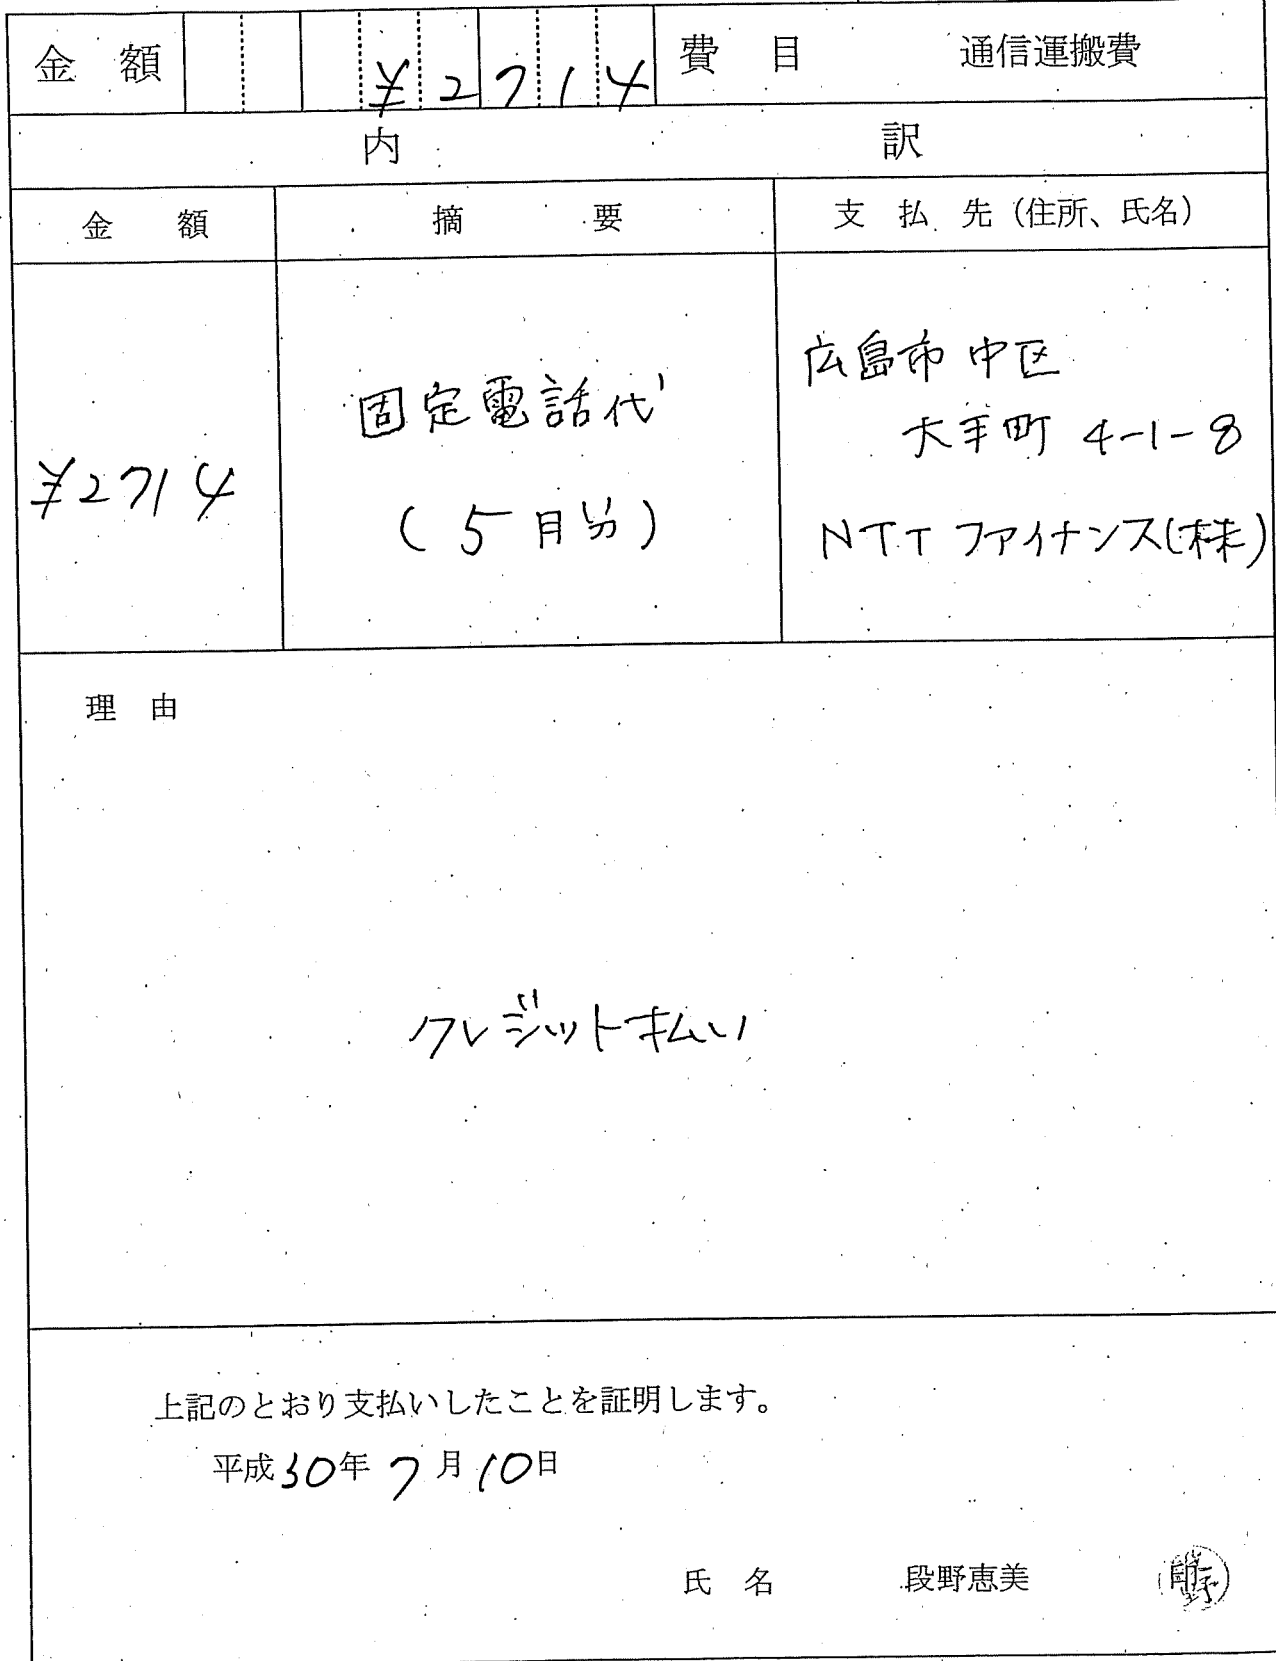 金額 ¥2714 費目 通信運搬費
内訳
金額 摘要 支払先（住所、氏名）
¥2714
固定電話代
（5月分）
広島市中区
大手町 4-1-8
NTTファイナンス(株)
理由
クレジット払い
上記のとおり支払いしたことを証明します。
平成30年7月10日
氏名 段野恵美 印